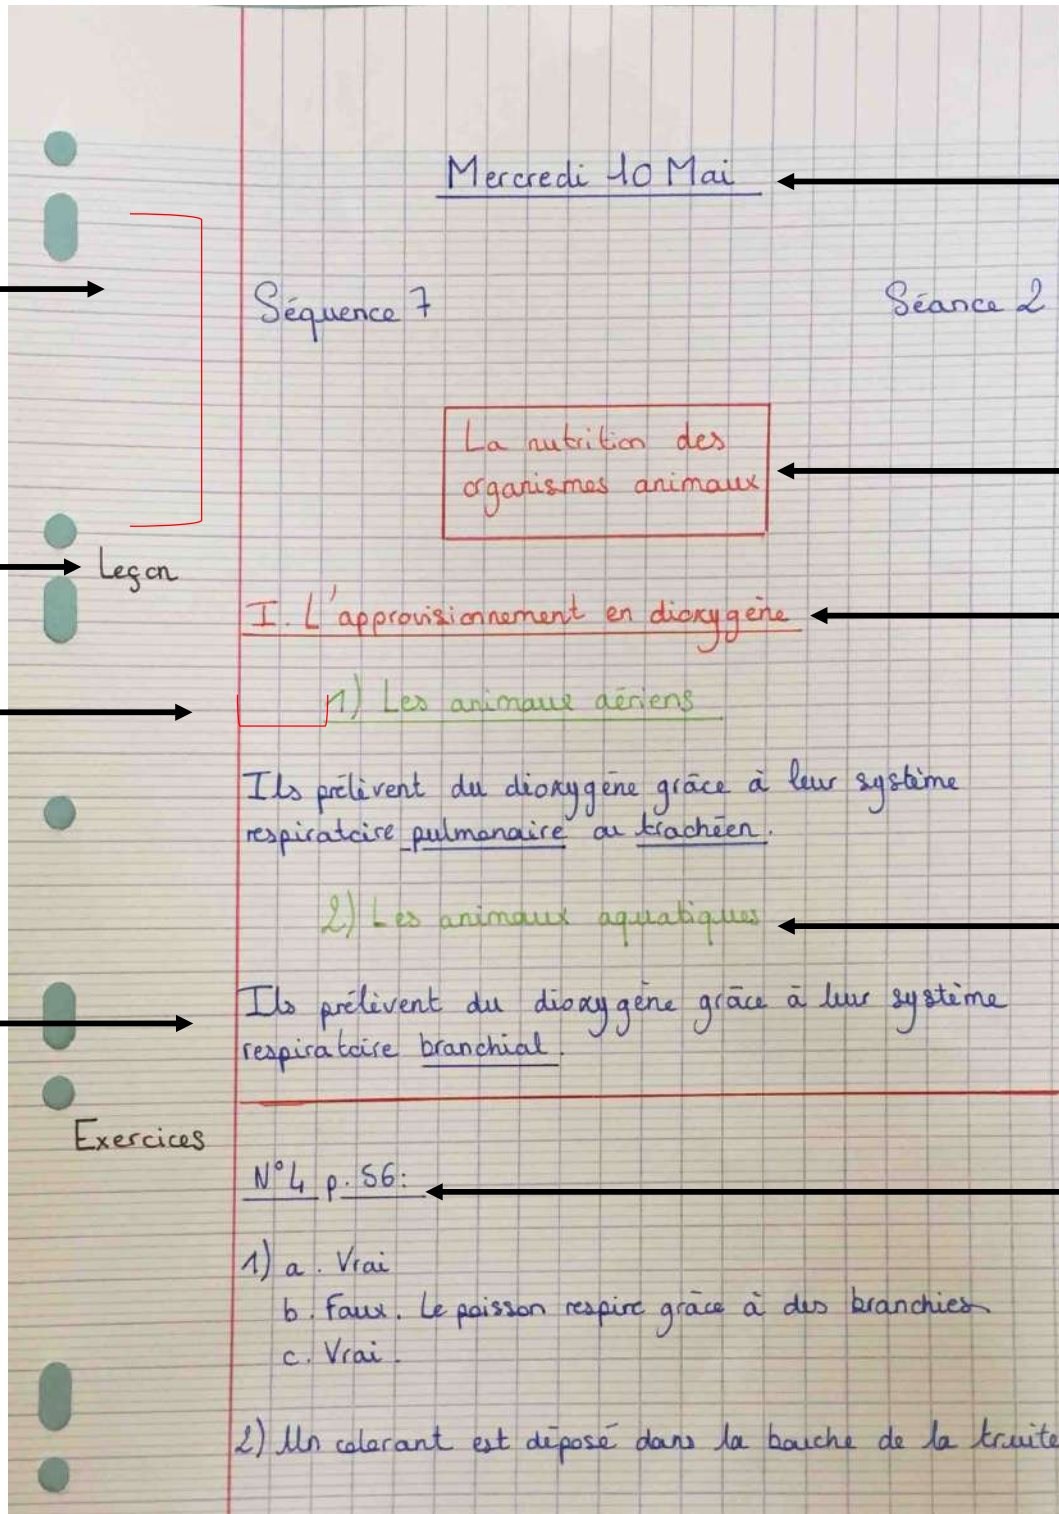 Mercredi 10 Mai
Séquence 7
Séance 2
La nutrition des
organismes animaux
Leçon
I. L'approvisionnement en dioxygène
1) Les animaux aériens
Ils prélèvent du dioxygène grâce à leur système
respiratoire pulmonaire ou trachéen.
2) Les animaux aquatiques
Ils prélèvent du dioxygène grâce à leur système
respiratoire branchial.
Exercices
N°4 p. 56:
1) a. Vrai
b. Faux. Le poisson respire grâce à des branchies
c. Vrai.
2) Un colorant est déposé dans la bouche de la truite